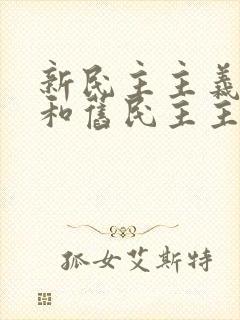 新民主主義
和舊民主主
孤女艾斯特